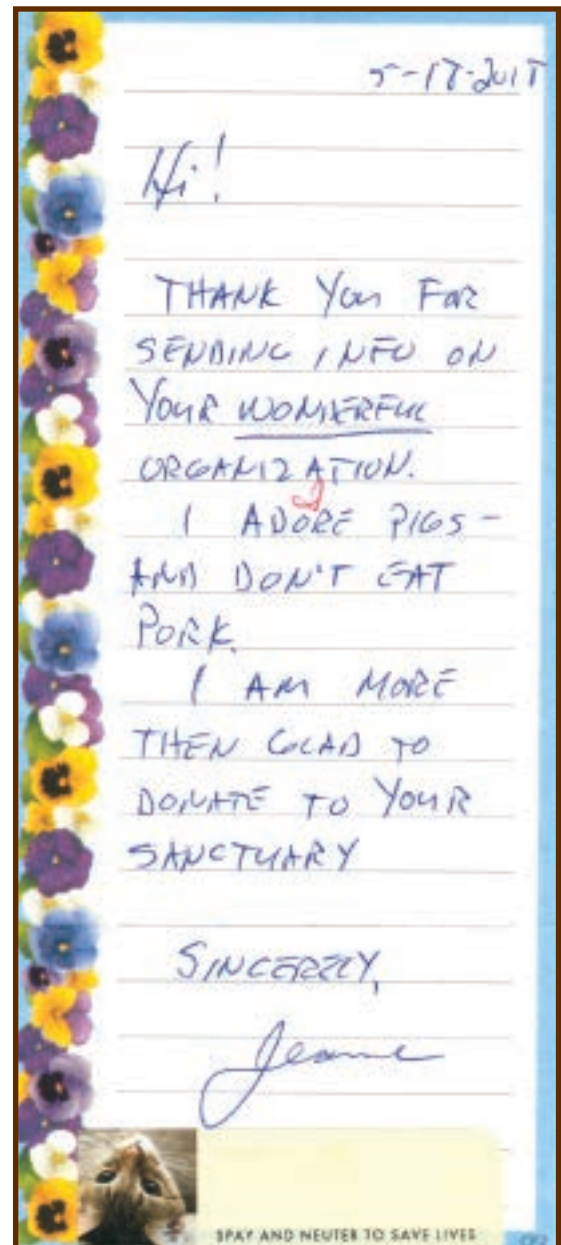 5-17-2017
Hi!
THANK YOU FOR
SENDING INFO ON
YOUR WONDERFUL
ORGANIZATION.
I ADORE PIGS -
AND DON'T EAT
PORK.
I AM MORE
THEN GLAD TO
DONATE TO YOUR
SANCTUARY
SINCERELY,
Jeanne
SPAY AND NEUTER TO SAVE LIVES